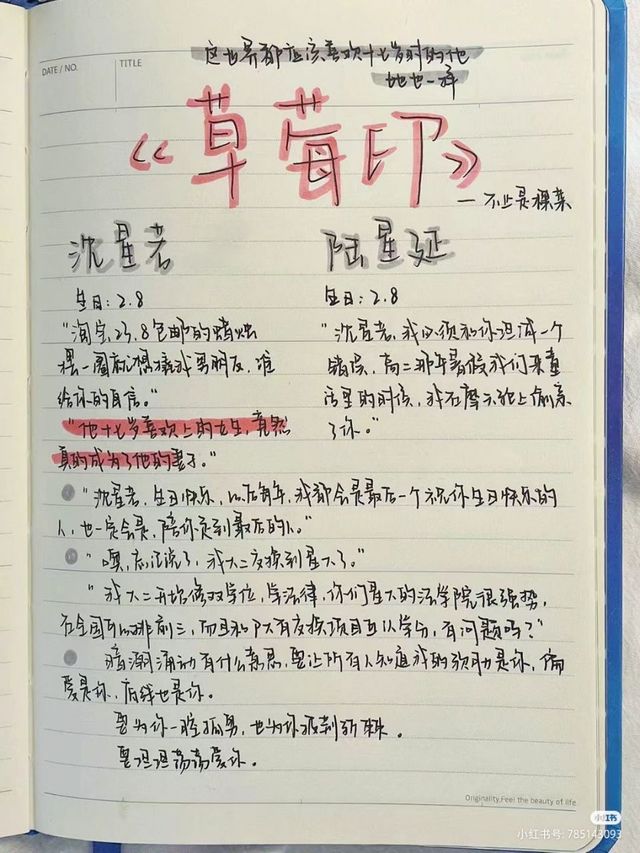 DATE / NO.
TITLE
这世界都应该喜欢十七岁时的他
她也一样
《草莓印》
— 不止是颗菜
沈星若
生日：2.8
"淘宝23.8包邮的蜡烛
摆一圈就想撬我男朋友，谁
给你的自信。"
"他十七岁喜欢上的女生，竟然
真的成为了他的妻子。"
陆星延
生日：2.8
"沈星若，我必须和你坦诚一个
错误，高二那年暑假我们来童
话里的时候，我在摩天轮上偷亲
了你。"
"沈星若，生日快乐，以后每年，我都会是最后一个祝你生日快乐的
人，也一定会是，陪你走到最后的人。"
"噢，忘记说了，我大二交换到星大了。"
"我大二开始修双学位，学法律，你们星大的法学院很强势，
在全国可以排前三，而且和P大有交换项目互认学分，有问题吗？"
暗潮涌动有什么意思，要让所有人知道我的心动是你，偏
爱是你，底线也是你。
要为你一腔孤勇，也为你披荆斩棘。
要坦坦荡荡爱你。
Originality,Feel the beauty of life
小红书
小红书号: 785143093